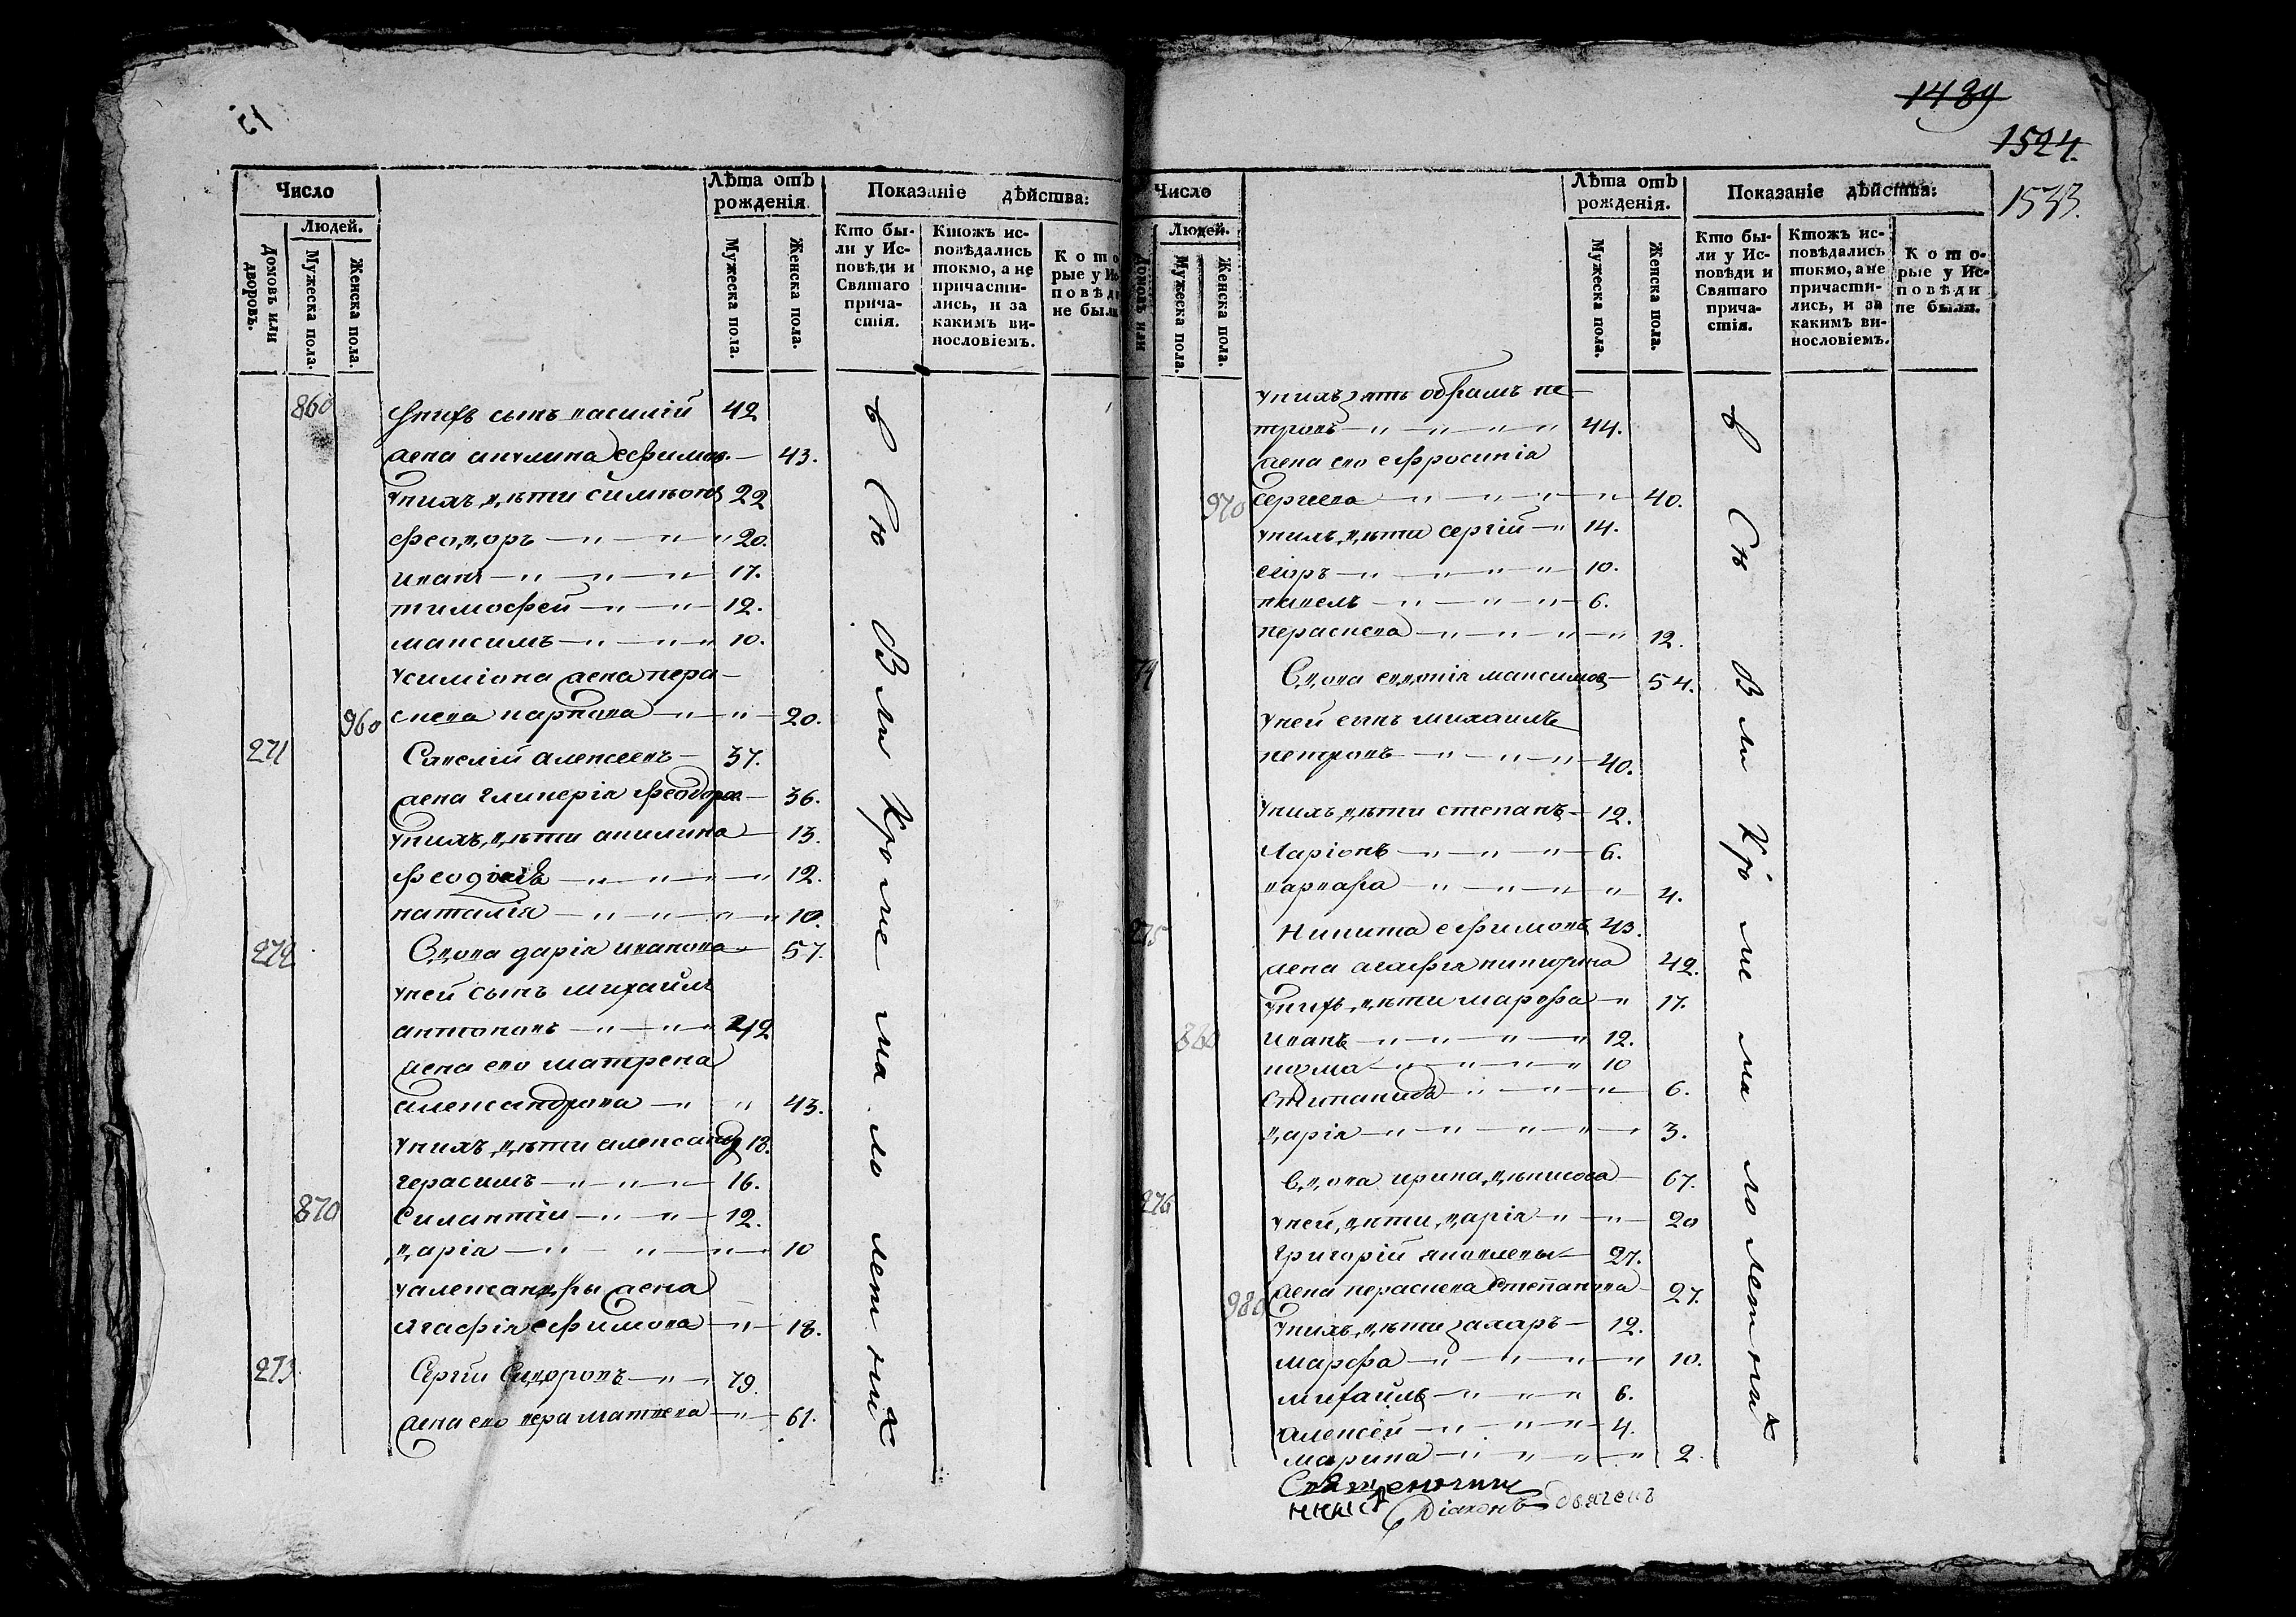 15
Число
Лѣта отъ рожденія
Показаніе дѣйства:
Людей.
Домовъ или дворовъ.
Мужеска пола.
Женска пола.
Мужеска пола.
Женска пола.
Кто бы-
ли у Ис-
повѣди и
Святаго
прича-
стія.
Ктожъ ис-
повѣдались
токмо, а не
причасти-
лись, и за
какимъ ви-
нословіемъ.
Кото
рые у Ис
повѣди
не были
860 унихъ сынъ василій 42
жена акулина ефимов. — 43.
унихъ дѣти симионъ 22
феодоръ — 20.
иванъ — 17.
тимофей — 12.
максимъ — 10.
усиміона жена пера-
960 скева карпова — 20.
271 Савелій алексеевъ — 37.
жена гликерія феодоро — 36.
унихъ дѣти акилина — 13.
феодосія — 12.
наталія — 10.
272 Вдова дарія иванова — 57.
уней сынъ михайлъ
антоновъ — 42
жена его матрена
александрова — 43.
унихъ дѣти александръ 18.
герасимъ — 16.
870 Силантій — 12.
дарія — 10
уалександры жена
Агафія ефимова — 18.
273 Сергій Сидоровъ — 79.
жена его вера матвева — 61.
всю
Вли Кроме малолетних
1489
1524.
1533.
Число
Лѣта отъ рожденія.
Показаніе дѣйства:
Людей.
Домовъ или
Мужеска пола.
Женска пола.
Мужеска пола.
Женска пола.
Кто бы-
ли у Ис-
повѣди и
Святаго
прича-
стія.
Ктожъ ис-
повѣдались
токмо, а не
причасти-
лись, и за
какимъ ви-
нословіемъ.
Кото-
рые у Ис-
повѣди
не были.
унихъ зять обрамъ пе-
тровъ — 44.
жена его ефросинія
970 сергеева — 40.
унихъ дѣти сергій — 14.
егоръ — 10.
павелъ — 6.
пераскева — 12.
74 Вдова евдокія максимов — 54.
уней сынъ михаилъ
петровъ — 40.
унихъ дѣти степанъ — 12.
Ларіонъ — 6.
варвара — 4.
275 Никита ефимовъ 43.
жена агафія никитина 42.
унихъ дѣти марфа — 17.
880 иванъ — 12.
козма — 10
степанида — 6.
дарія — 3.
276 Вдова ирина денисова — 67.
уней дѣти дарія — 20
григорій яковлевы — 27.
980 жена пераскева Степанова — 27.
унихъ дѣти захаръ — 12.
марфа — 10.
михайлъ — 6.
алексей — 4.
марина — 2.
всю
Вли Кроме малолетних
Священникъ
Діаконъ